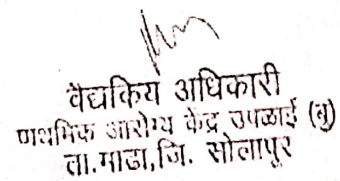 वैद्यकिय अधिकारी
प्राथमिक आरोग्य केंद्र उपळाई (बु)
ता.माढा,जि. सोलापूर